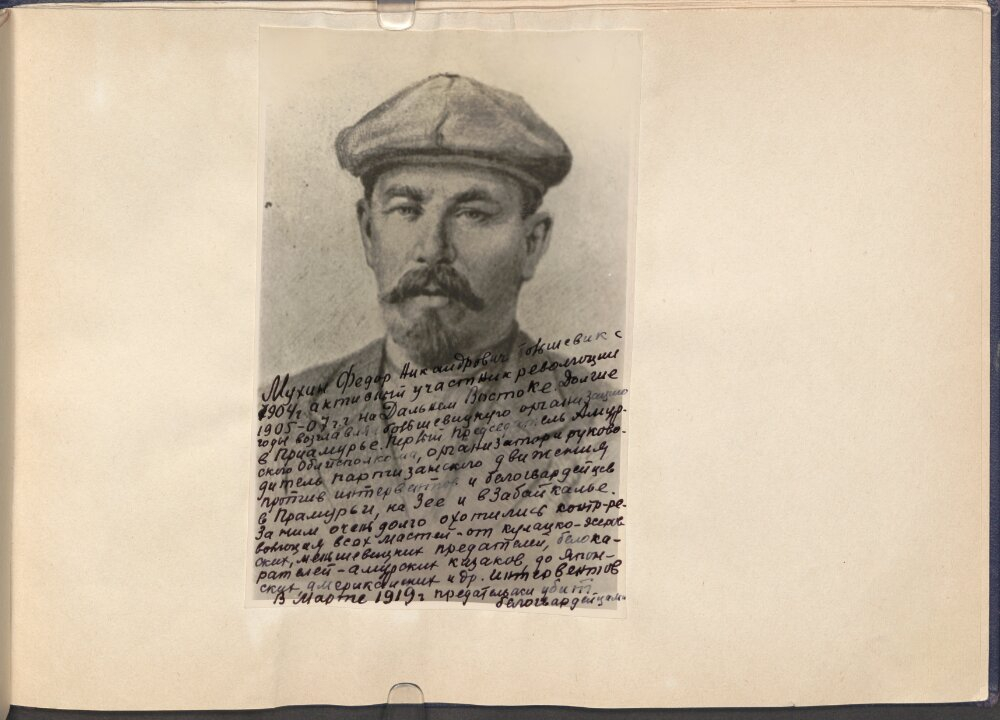 Мухин Федор Никандрович большевик с
1904г. активный участник революции
1905-07г.г на Дальнем Востоке. Долгие
годы возглавлял большевицкую организацию
в Приамурье. Первый председатель Амур-
ского Облисполкома, организатор и руково-
дитель партизанского движения
против интервентов и белогвардейцев
в Прамурьи, на Зее и в Забайкалье.
За ним очень долго охотились контр-ре-
волюция всех мастей - от кулацко-эсеро
ских, меньшевицких предателей, белока-
рателей - амурских казаков, до Япон-
ских американских и др. интервентов
В Марте 1919г предательски убит
белогвардейцами